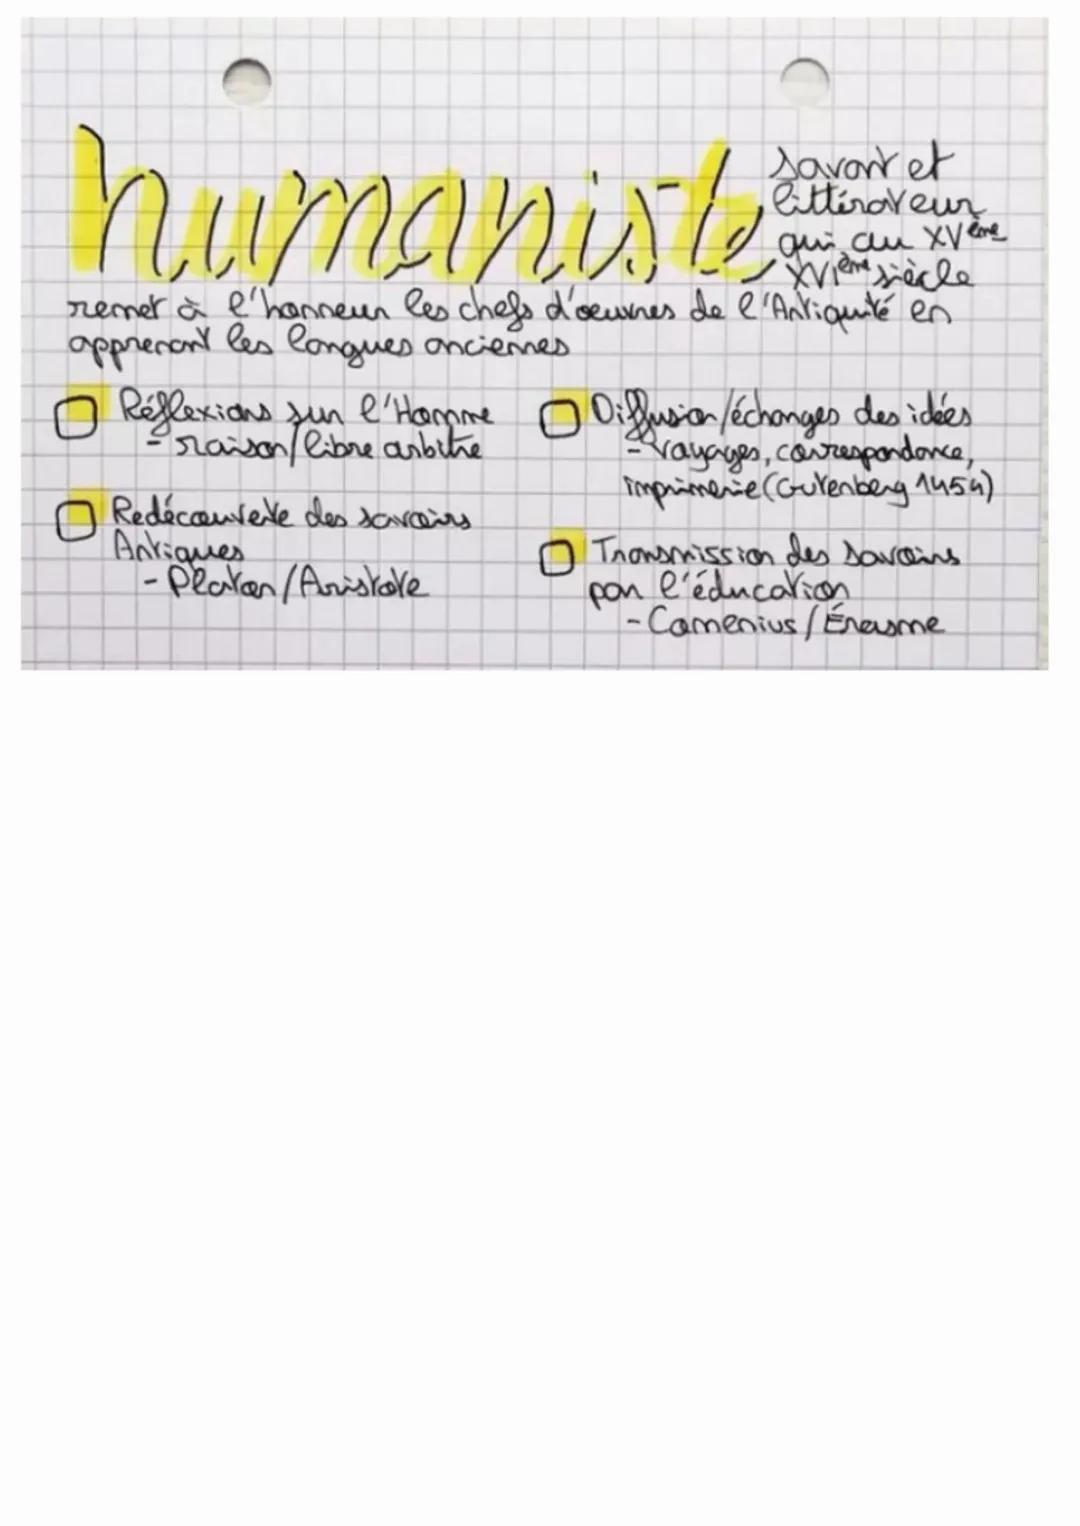 humaniste
savant et
littérateur
qui au XVème
XVIème siècle
remet à l'honneur les chefs d'œuvres de l'Antiquité en
apprenant les langues anciennes
Réflexions sur l'Homme
- raison/libre arbitre
Redécouverte des savoirs
Antiques
- Platon/Aristote
Diffusion/échanges des idées
- Voyages, correspondance,
imprimerie (Gutenberg 1454)
Transmission des savoirs
par l'éducation
- Comenius/Érasme